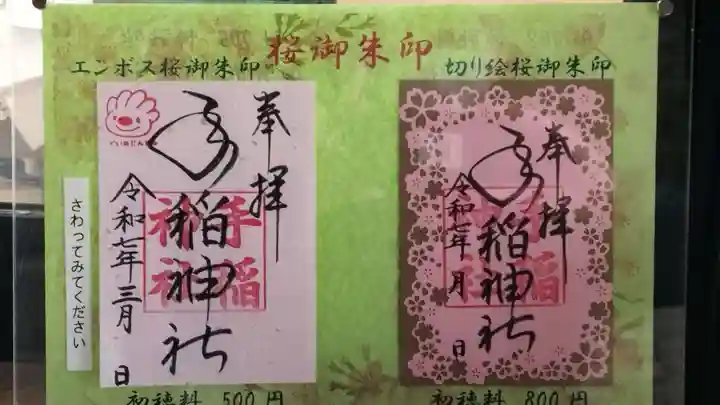 桜御朱印
エンボス桜御朱印
切り絵桜御朱印
奉拝
手稲神社
手稲神社
令和七年三月 日
さわってみてください
初穂料 500円
奉拝
手稲神社
手稲神社
令和七年 月 日
初穂料 800円